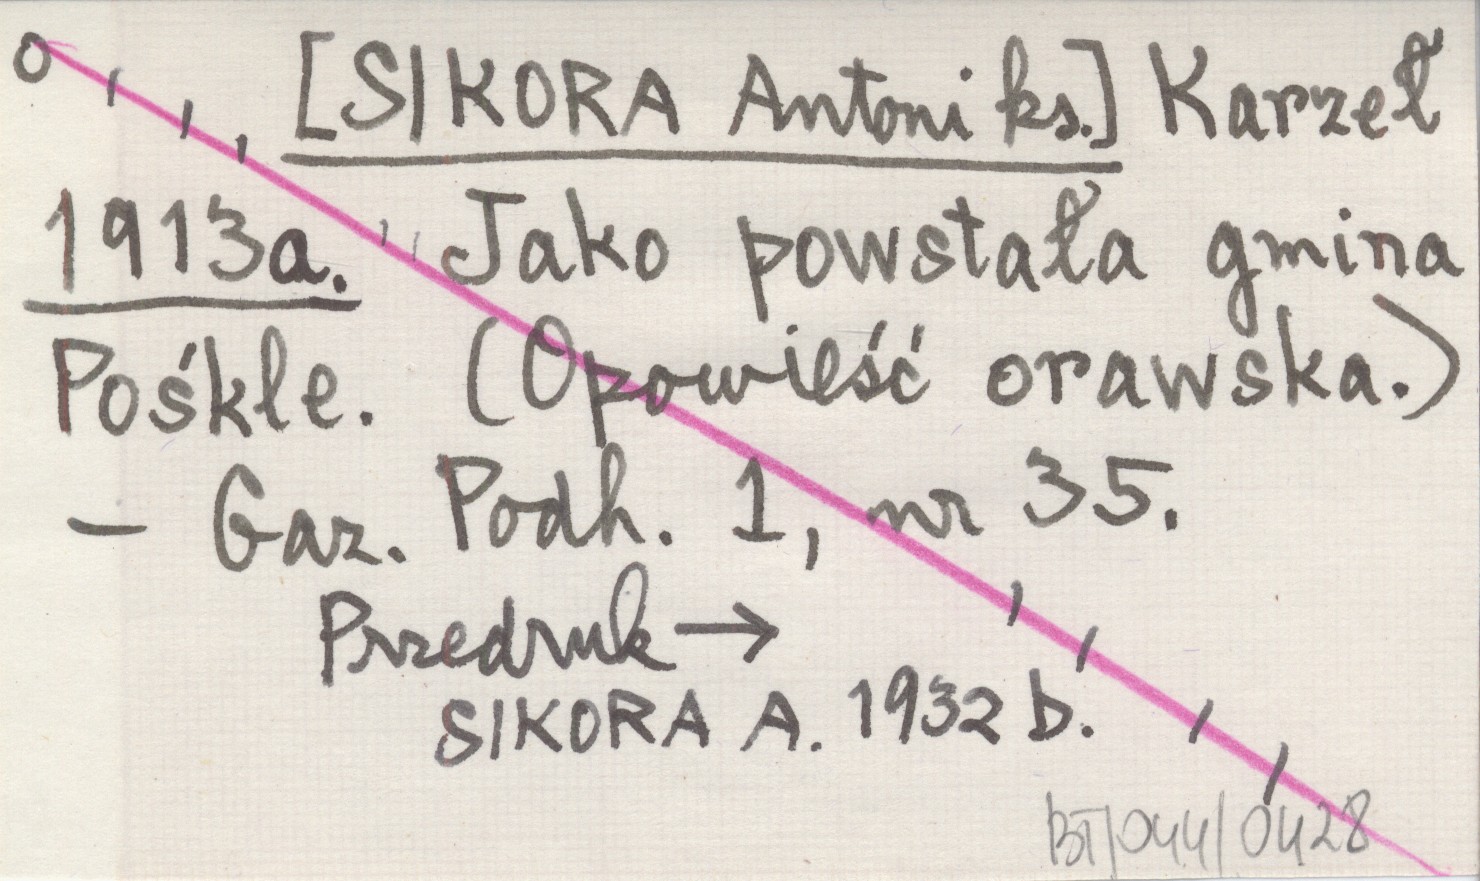 [SIKORA Antoni ks.] Karzeł
1913a. Jako powstała gmina
Pośkle. (Opowieść orawska.)
– Gaz. Podh. 1, nr 35.
Przedruk →
SIKORA A. 1932 b.
BT/044/0428